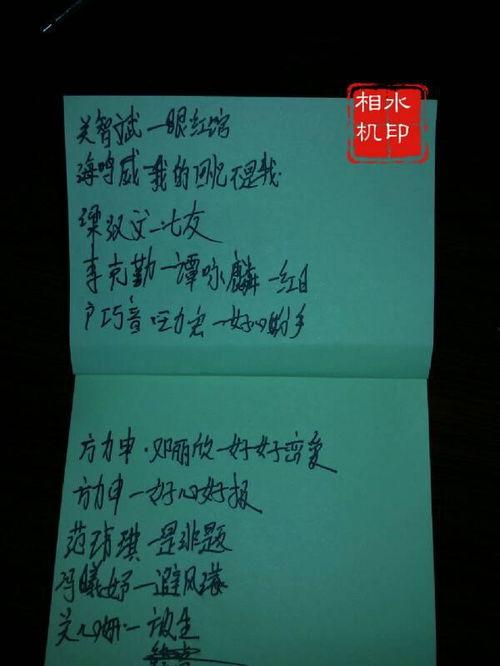 相水
机印
关智斌一眼红馆
海鸣威 我的回忆不是我
梁汉文一七友
李克勤一谭咏麟一红日
卢巧音 王力宏一好心分手
方力申·邓丽欣一好好恋爱
方力申一好心好报
范玮琪一是非题
冯曦妤一避风港
关心妍一